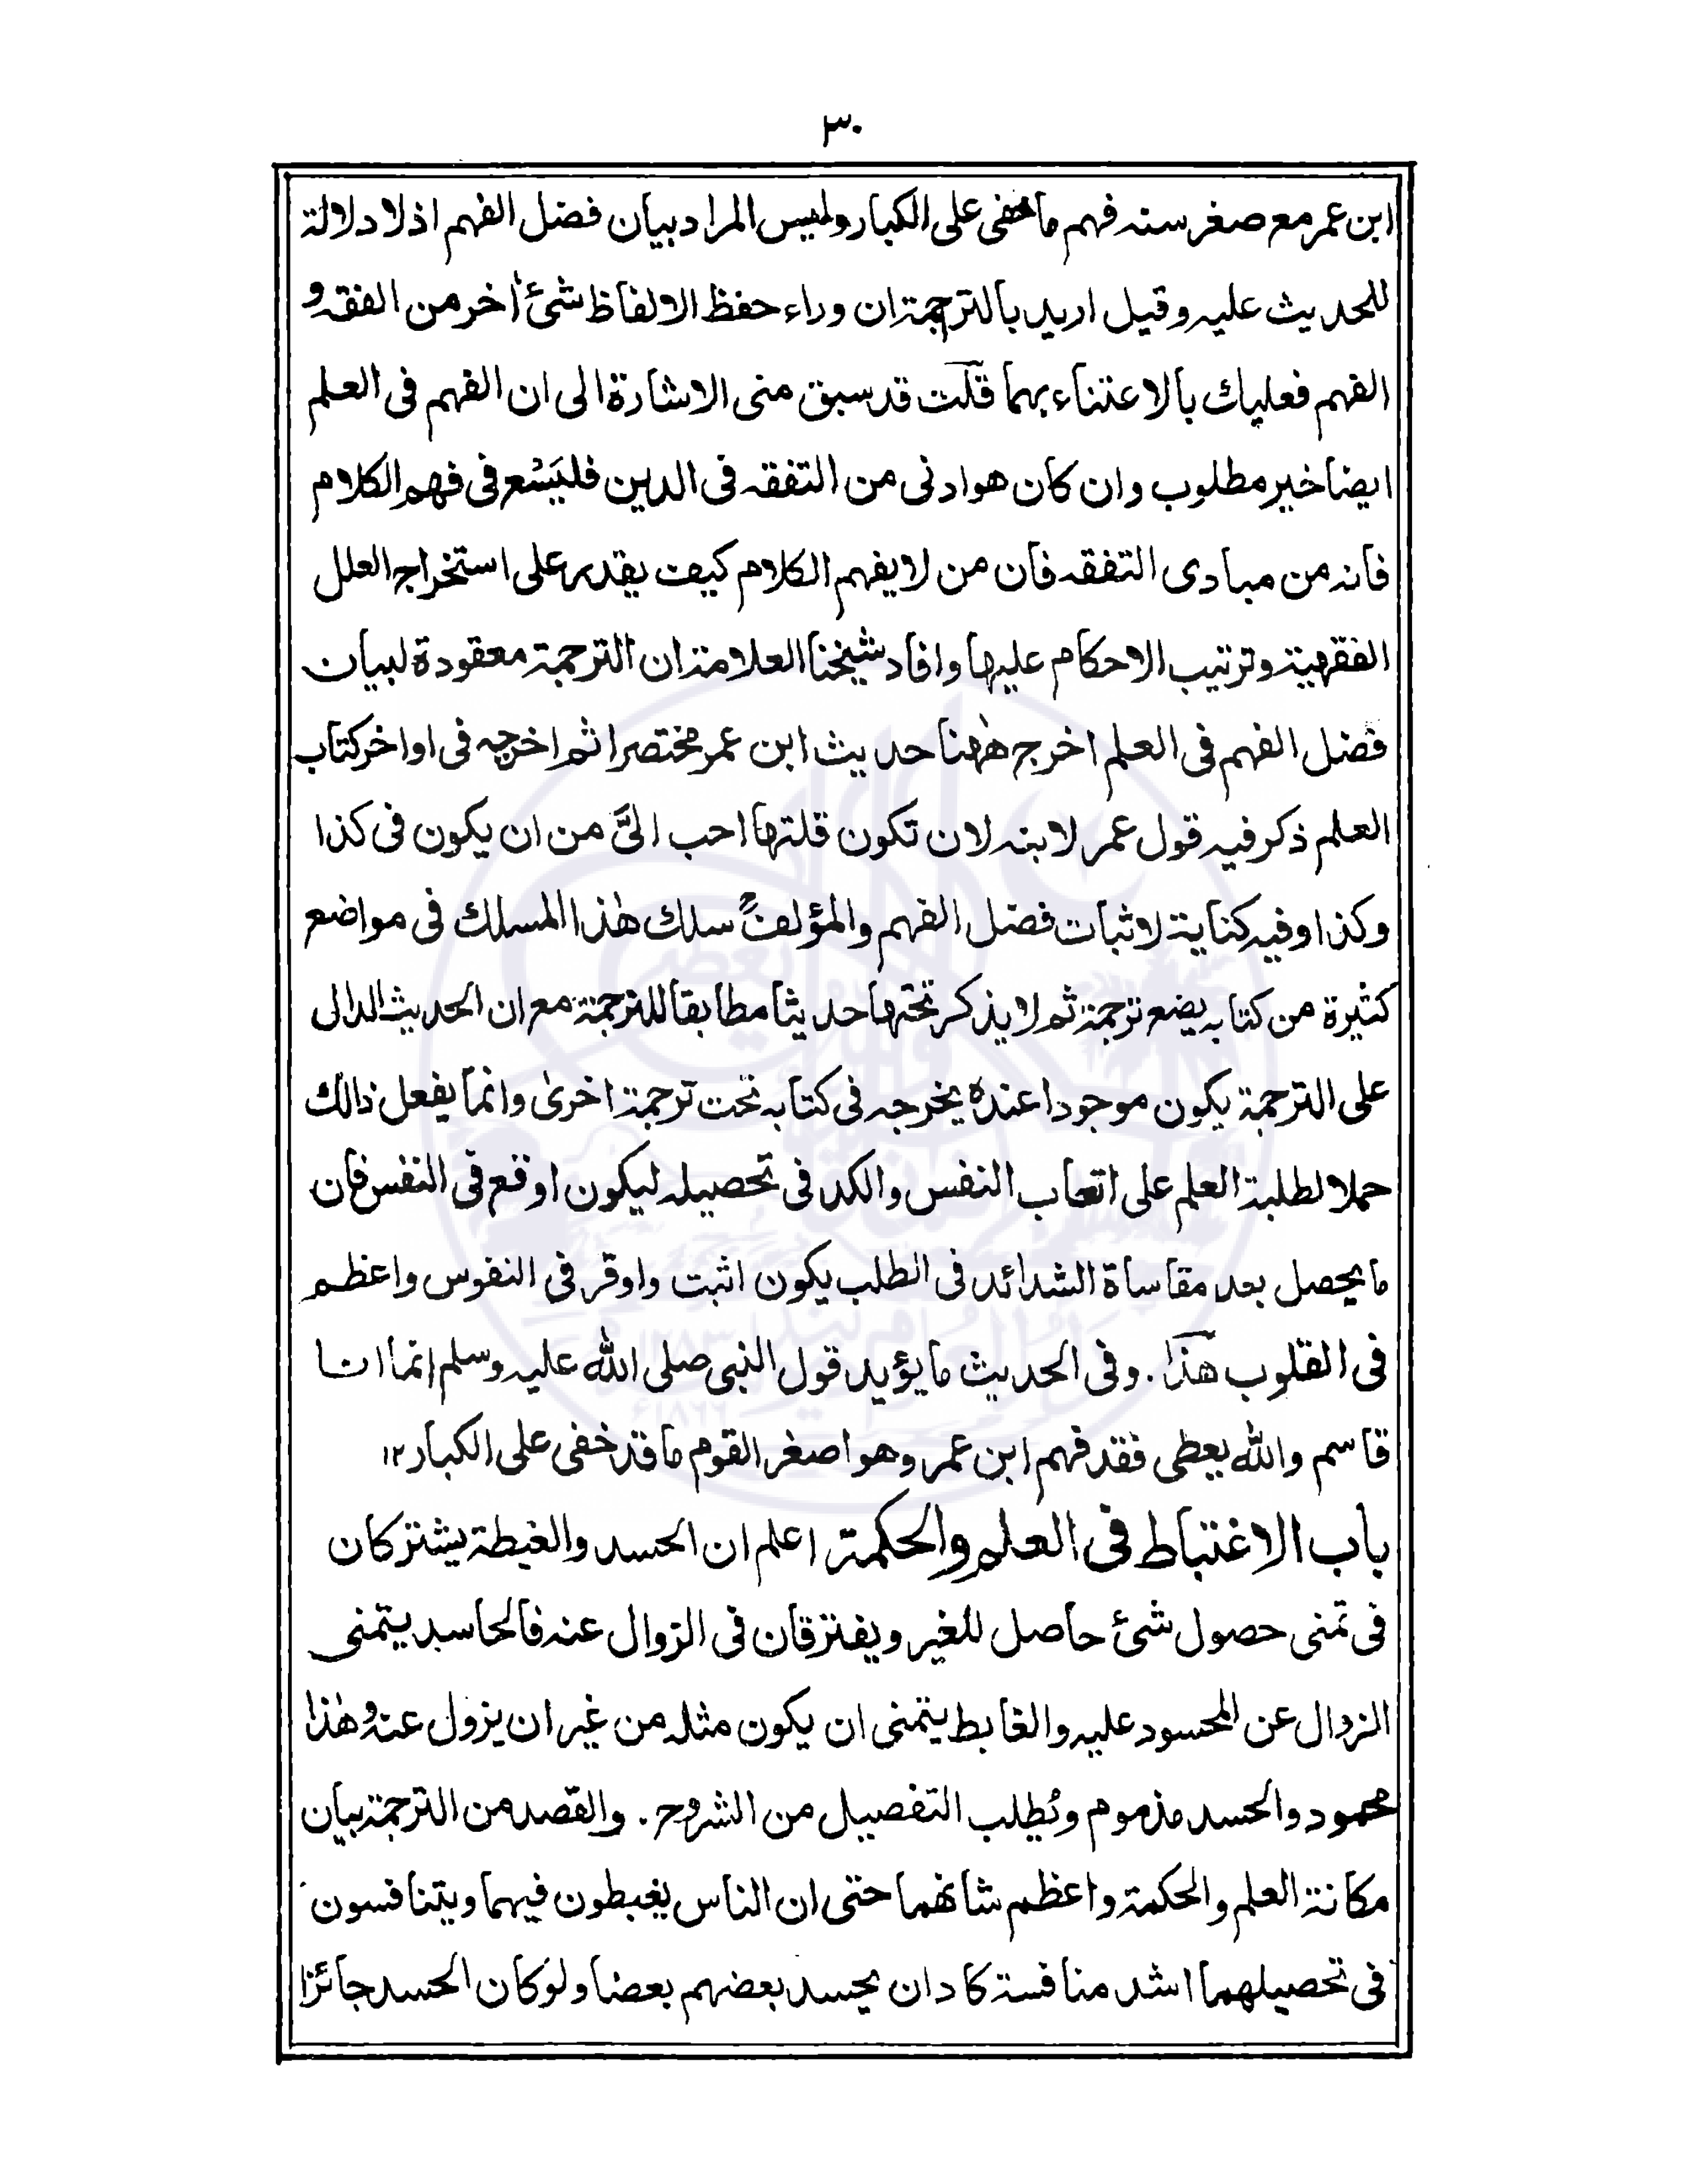 ٣٠
ابن عمر مع صغر سنه فهم ما خفى على الكبار وليس المراد بيان فضل الفهم اذ لا دلالة
للحديث عليه وقيل اريد بالترجمة ان وراء حفظ الالفاظ شئ أخر من الفقه و
الفهم فعليك بالاعتناء بهما قلت قد سبق منى الاشارة الى ان الفهم فى العلم
ايضا خير مطلوب وان كان هو ادنى من التفقه فى الدين فليَسْع فى فهم الكلام
فانه من مبادى التفقه فان من لا يفهم الكلام كيف يقدر على استخراج العلل
الفقهية وترتيب الاحكام عليها وافاد شيخنا العلامة ان الترجمة معقودة لبيان
فضل الفهم فى العلم اخرج ههنا حديث ابن عمر مختصرا ثم اخرجه فى اواخر كتاب
العلم ذكر فيه قول عمر لابنه لان تكون قلتها احب الىَّ من ان يكون فى كذا
وكذا وفيه كناية لاثبات فضل الفهم والمؤلفؒ سلك هٰذا المسلك فى مواضع
كثيرة من كتابه يضع ترجمة ثم لا يذكر تحتها حديثا مطابقا للترجمة مع ان الحديث الدال
على الترجمة يكون موجودا عنده يخرجه فى كتابه تحت ترجمة اخرىٰ وانما يفعل ذالك
حملا لطلبة العلم على اتعاب النفس والكد فى تحصيله ليكون اوقع فى النفس فان
ما يحصل بعد مقاساة الشدائد فى الطلب يكون اثبت واوقر فى النفوس واعظم
فى القلوب هذا. وفى الحديث ما يؤيد قول النبى صلى الله عليه وسلم انما انا
قاسم والله يعطى فقد فهم ابن عمر وهو اصغر القوم ما قد خفى على الكبار ١٢
باب الاغتباط فى العلم والحكمة اعلم ان الحسد والغبطة يشتركان
فى تمنى حصول شئ حاصل للغير ويفترقان فى الزوال عنه فالحاسد يتمنى
الزوال عن المحسود عليه والغابط يتمنى ان يكون مثله من غير ان يزول عنه وهٰذا
محمود والحسد مذموم ويُطلب التفصيل من الشروح. والقصد من الترجمة بيان
مكانة العلم والحكمة واعظم شانهما حتى ان الناس يغبطون فيهما ويتنافسون
فى تحصيلهما اشد منافسة كاد ان يحسد بعضهم بعضا ولو كان الحسد جائزا